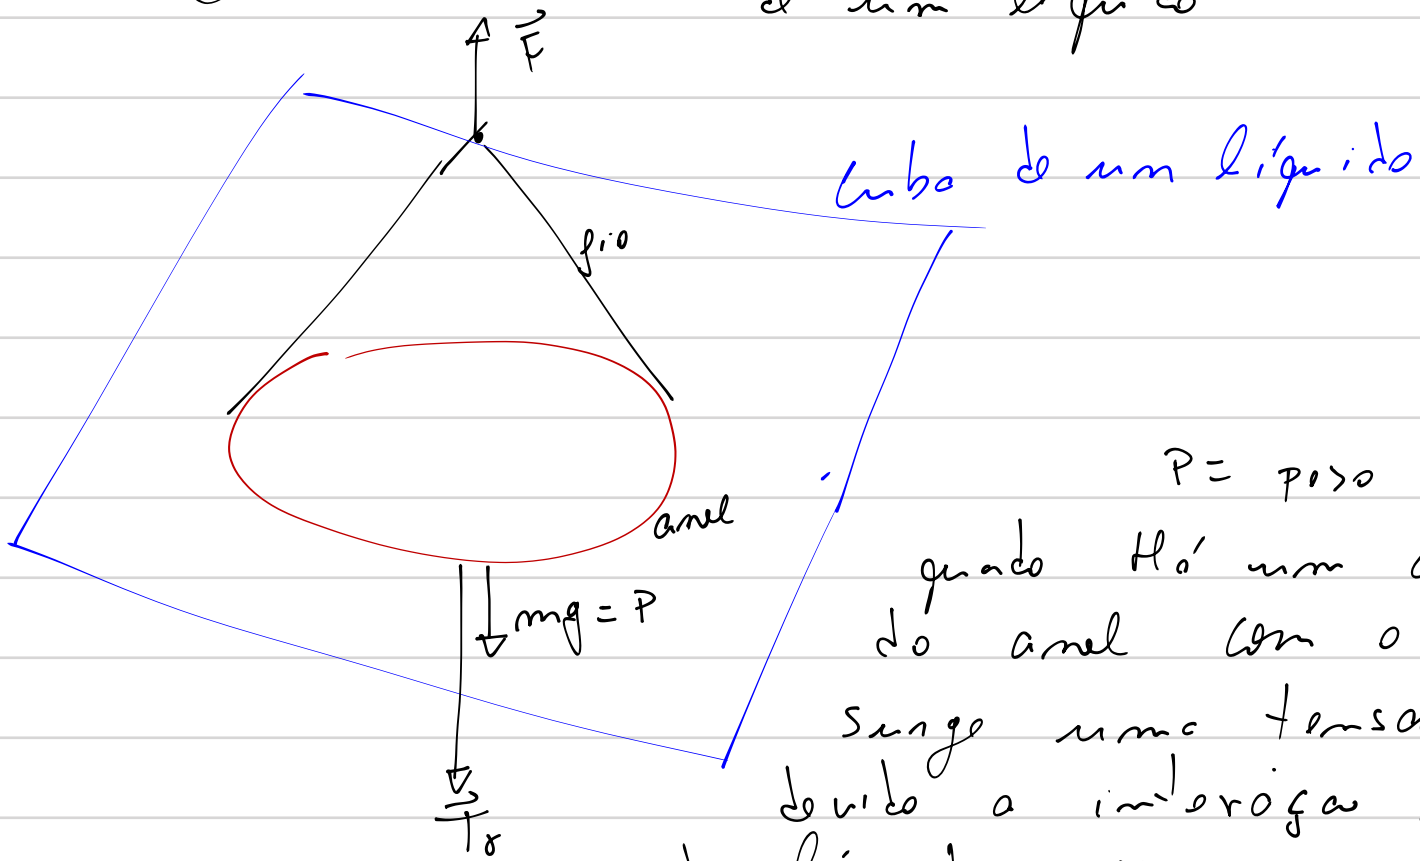 F
d um líquido
cuba de um líquido
fio
anel
mg = P
P = peso
quado Há um
do anel com o
surge uma tensa
devido a interaça
Tγ